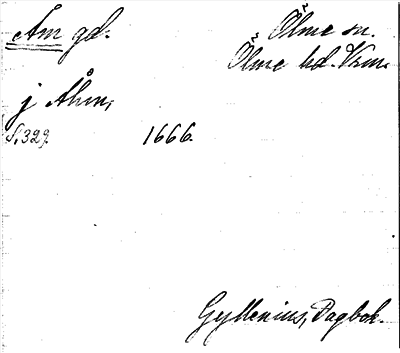 Åm gd.
Ölme sn.
Ölme hd. Vrm.
j Åhm,
S. 329.
1666.
Gyllenius, Dagbok.